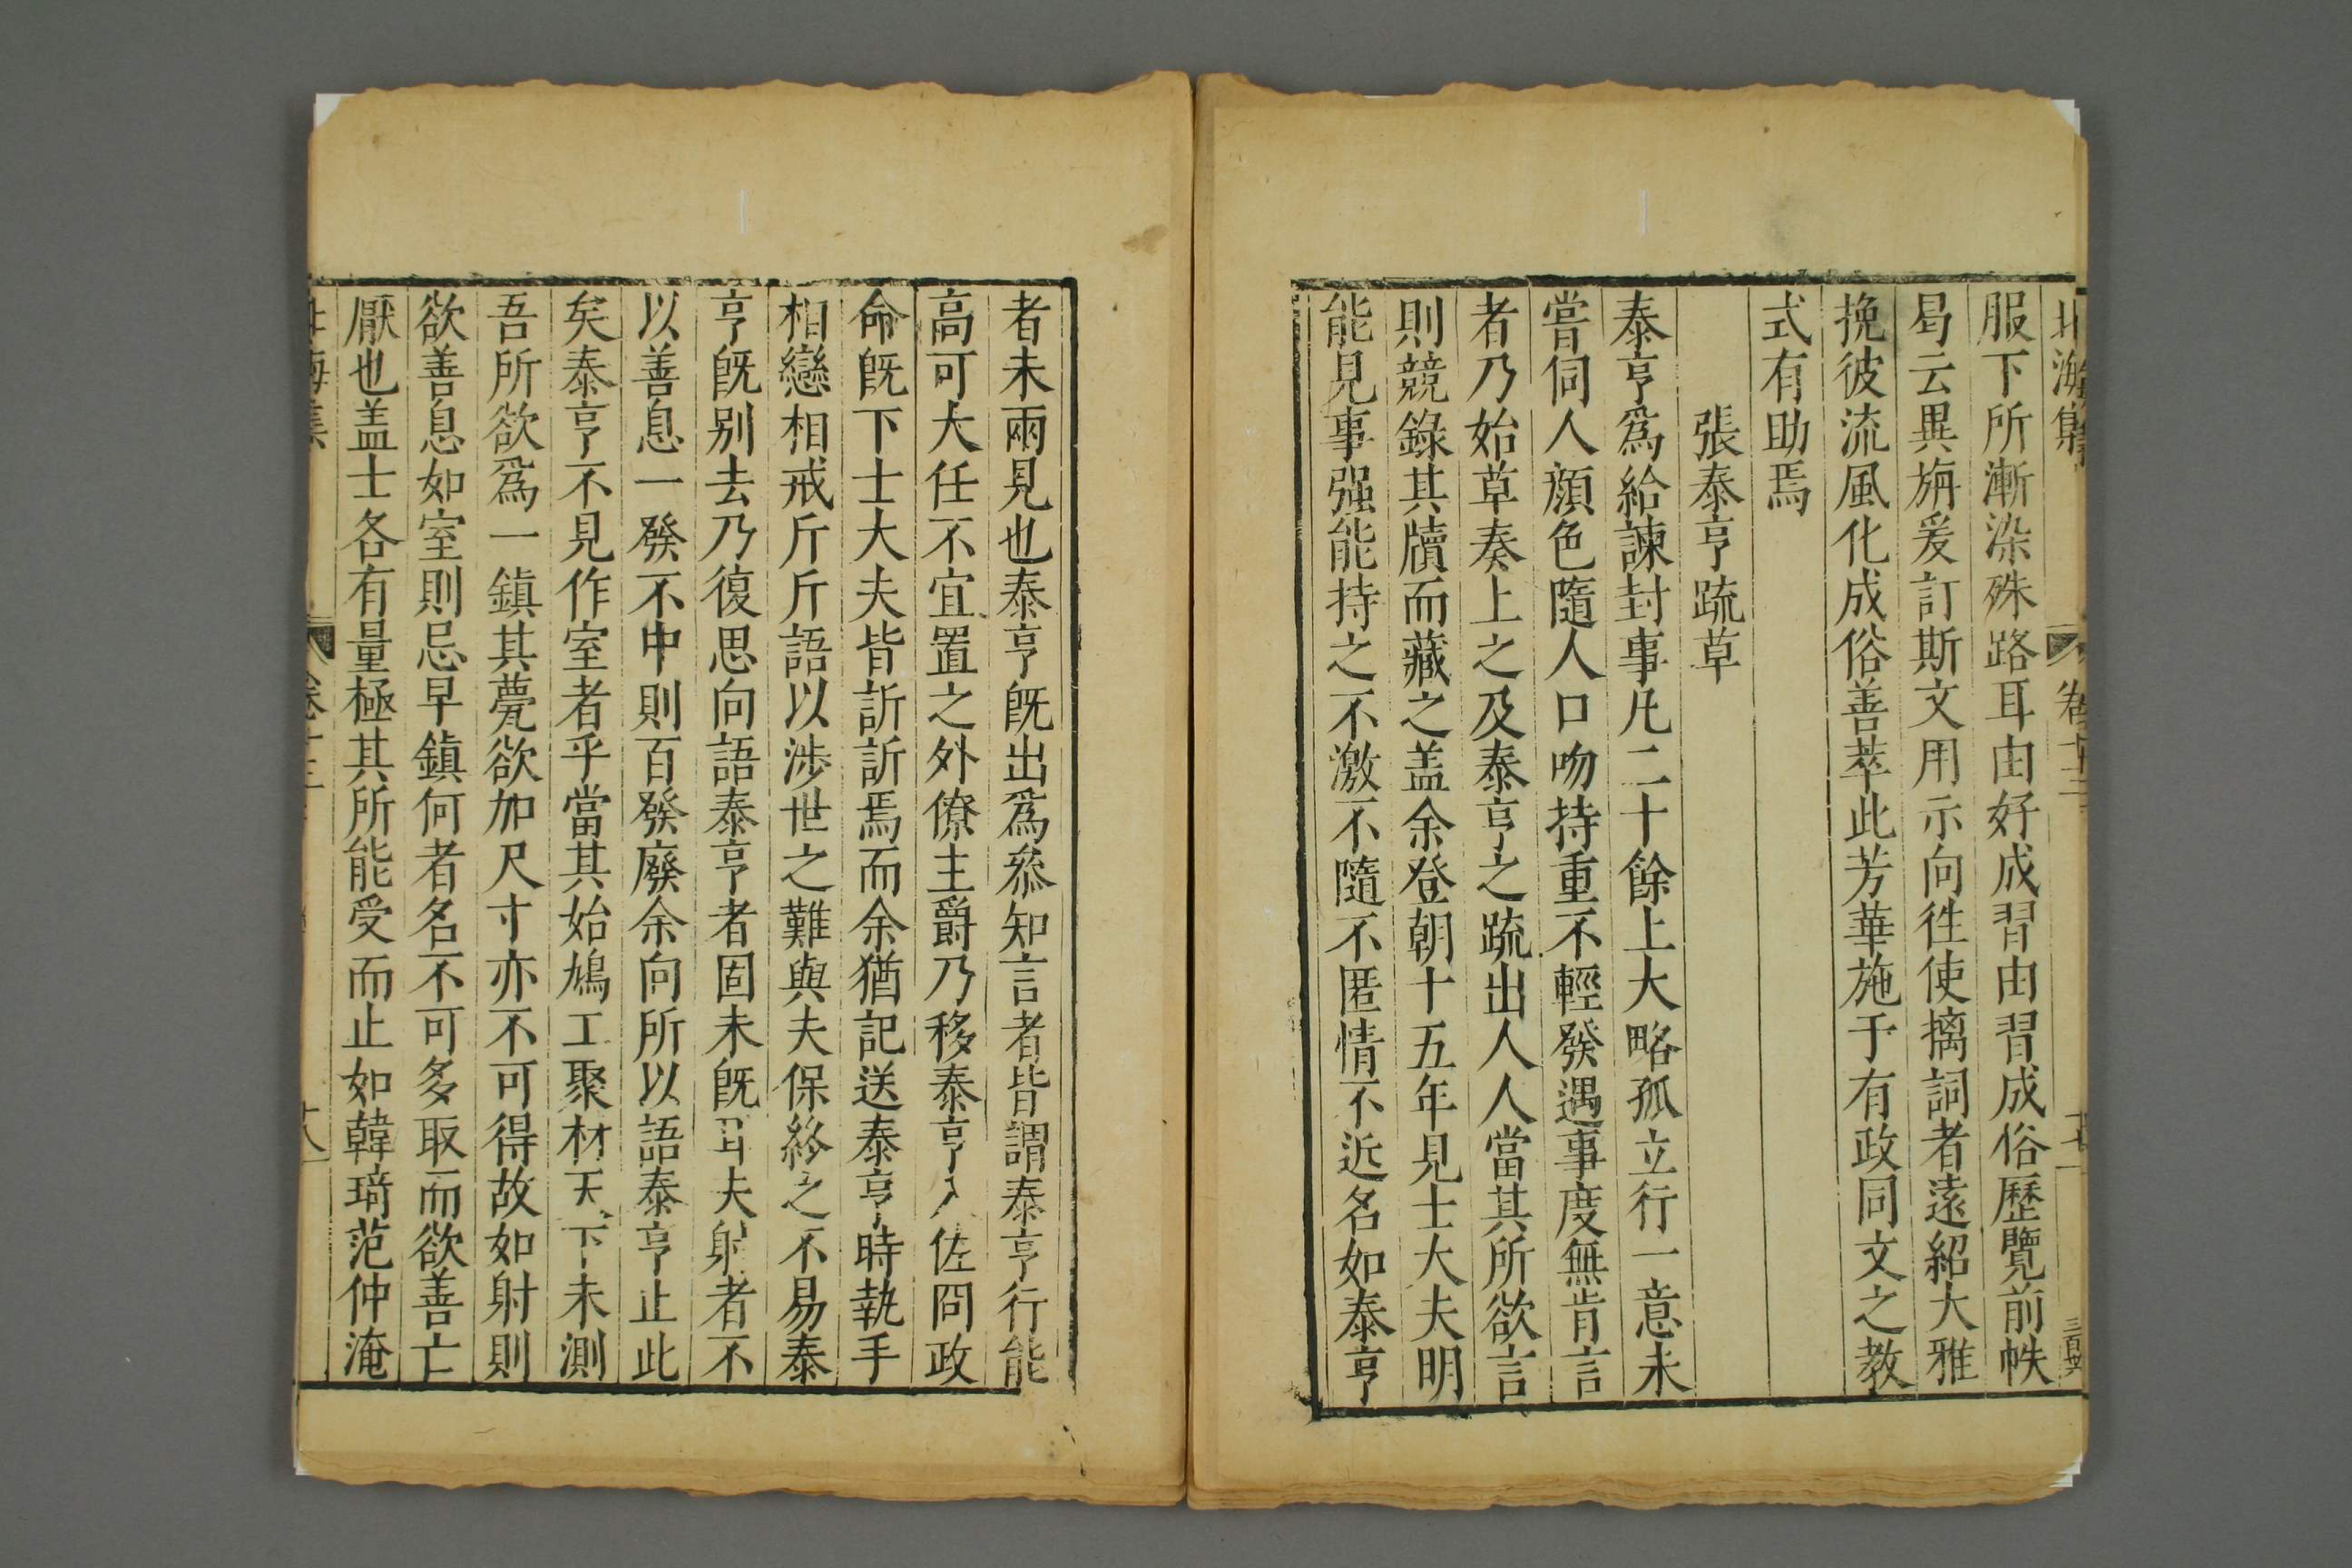 北海集
卷十三
十七
服下所漸染殊路耳由好成習由習成俗歷覽前帙
曷云異旃爰訂斯文用示向徃使摛詞者遠紹大雅
挽彼流風化成俗善萃此芳華施于有政同文之教
式有助焉
張泰亨疏草
泰亨爲給諫封事凡二十餘上大略孤立行一意未
嘗伺人顏色隨人口吻持重不輕發遇事度無肯言
者乃始草奏上之及泰亨之疏出人人當其所欲言
則競錄其牘而藏之盖余登朝十五年見士大夫明
能見事强能持之不激不隨不匿情不近名如泰亨
者未兩見也泰亨旣出爲叅知言者皆謂泰亨行能
高可大任不宜置之外僚主爵乃移泰亨入佐冏政
命旣下士大夫皆訢訢焉而余猶記送泰亨時執手
相戀相戒斤斤語以涉世之難與夫保終之不易泰
亨旣别去乃復思向語泰亨者固未旣耳夫射者不
以善息一發不中則百發廢余向所以語泰亨止此
矣泰亨不見作室者乎當其始鳩工聚材天下未測
吾所欲爲一鎮其甍欲加尺寸亦不可得故如射則
欲善息如室則忌早鎮何者名不可多取而欲善亡
厭也盖士各有量極其所能受而止如韓琦范仲淹
北海集
卷十三
十八